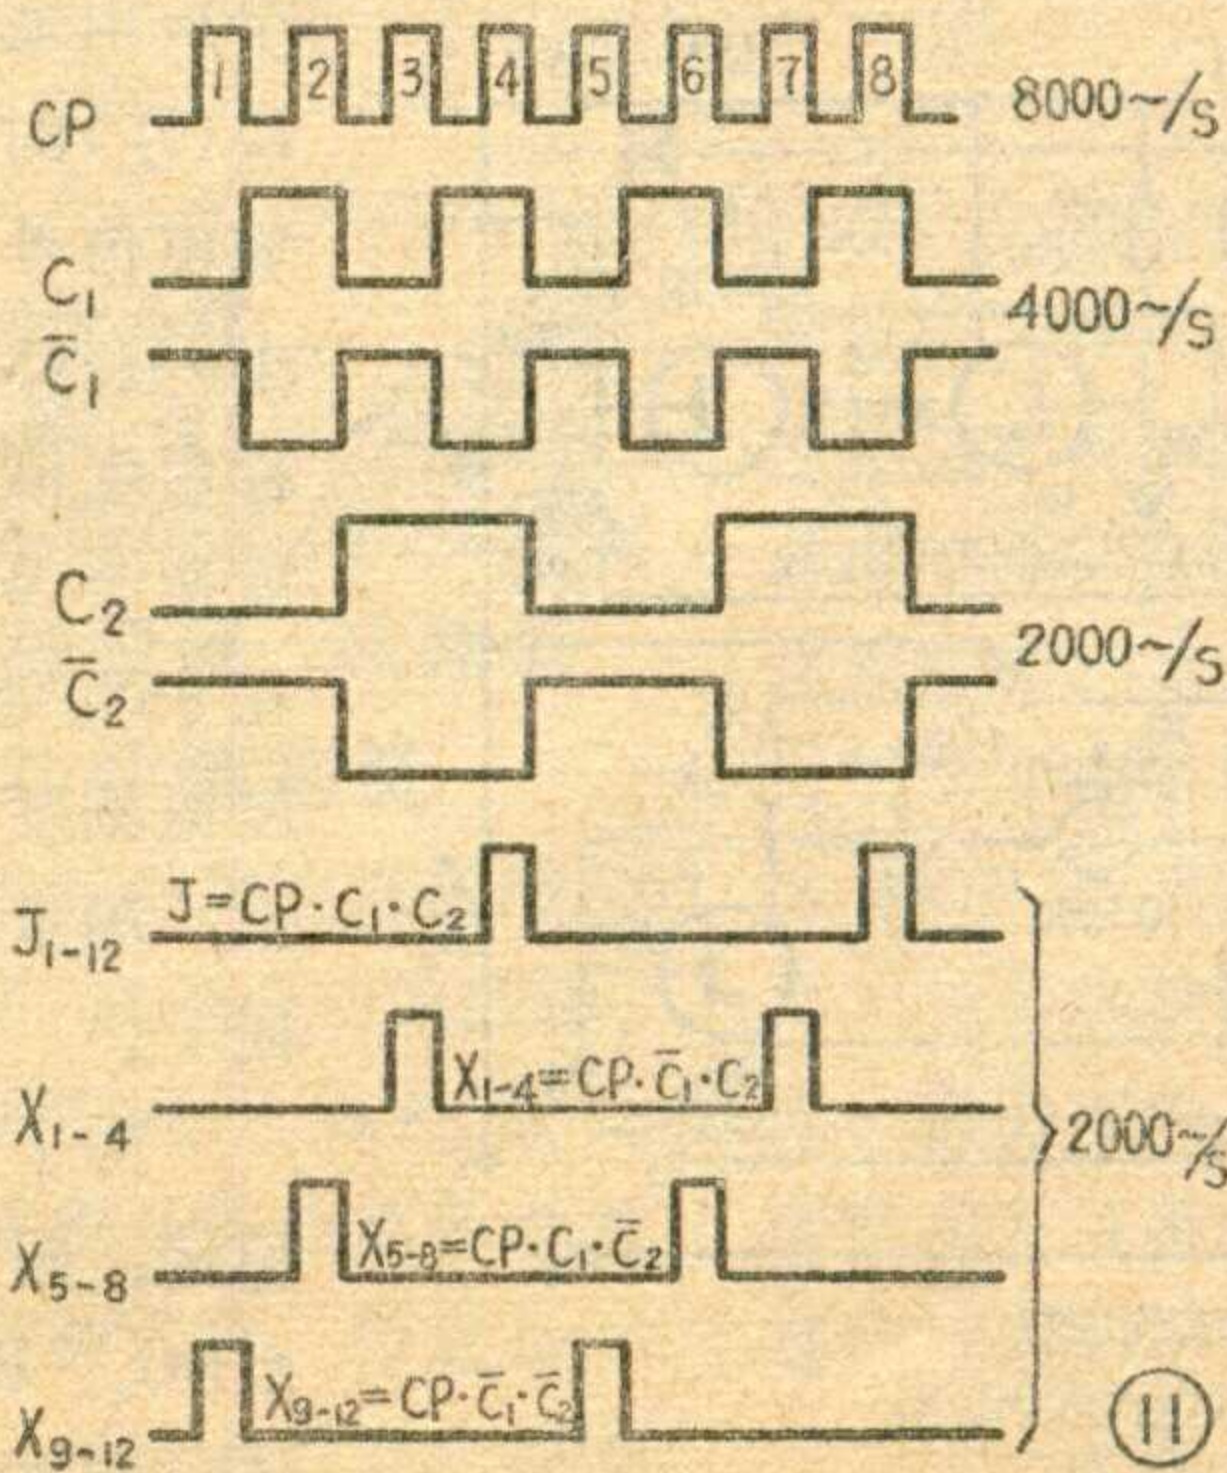 CP 1 2 3 4 5 6 7 8 8000~/S
C₁
C̅₁ 4000~/S
C₂
C̅₂ 2000~/S
J₁₋₁₂ J=CP·C₁·C₂
X₁₋₄ X₁₋₄=CP·C̅₁·C₂
2000~/S
X₅₋₈ X₅₋₈=CP·C₁·C̅₂
X₉₋₁₂ X₉₋₁₂=CP·C̅₁·C̅₂
11